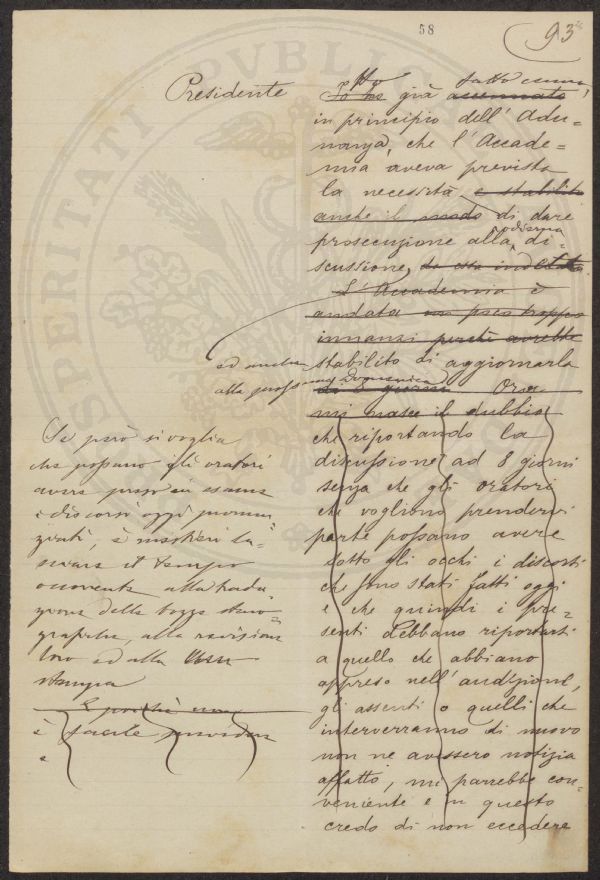 58
93
Presidente
Ho già fatto cenno
in principio dell'Adu=
nanza, che l'Accade=
mia aveva prevista
la necessità e stabilito
anche il modo di dare
prosecuzione alla odierna di=
scussione, da essa indetta.
L'Accademia è
andata un poco troppo
innanzi perché avrebbe
stabilito di aggiornarla
ad anche
alla pross. Domenica
da 8 giorni. Ora
mi nasce il dubbio
che riportando la
discussione ad 8 giorni
senza che gli oratori
che vogliono prendervi
parte possano avere
sotto gli occhi i discorsi
che sono stati fatti oggi
e che quindi i pre=
senti debbano riportarsi
a quello che abbiano
appreso nell'audizione,
gli assenti o quelli che
interverranno di nuovo
non ne avessero notizia
affatto, mi parrebbe con=
veniente e in questo
credo di non eccedere
Se però si voglia
che possano gli oratori
avere presi in esame
i discorsi oggi pronun
ziati, è mestieri la=
sciare il tempo
occorrente alla tradu=
zione delle bozze steno=
grafiche, alla revisione
loro ed alla
stampa
E poichè non
è facile
PROSPERITATI PVBLICAE